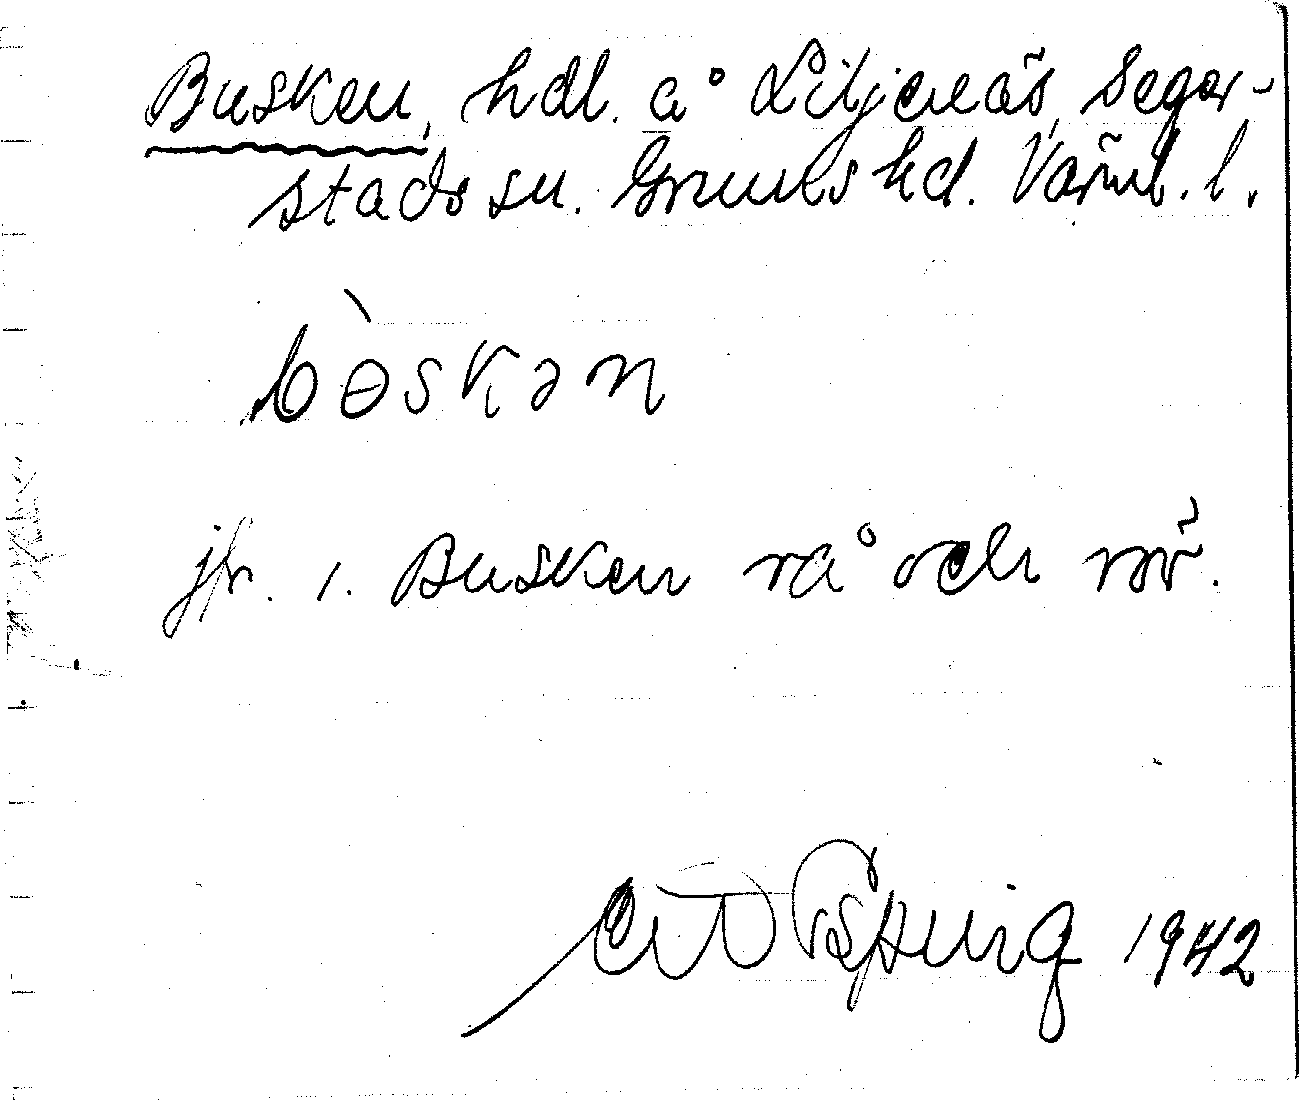 Busken, hdl. å Liljenäs, Seger-
stads sn. Grums hd. Värml. l.
bɵ̀skən
jfr. 1. Busken rå och rör.
1942